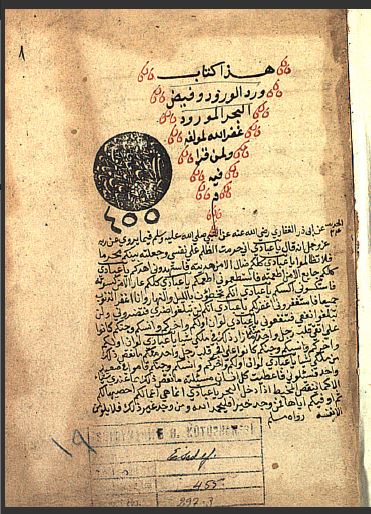 ٨
هذا كتاب
ورد الورود وفيض
البحر المورود
غفر الله لمؤلفه
ولمن قرا
فيه
٤٥٥
عن ابي ذر الغفاري رضي الله عنه عن النبي صلى الله عليه وسلم فيما يروي عن ربه
عز وجل انه قال يا عبادي اني حرمت الظلم على نفسي وجعلته بينكم محرما
فلا تظالموا يا عبادي كلكم ضال الا من هديته فاستهدوني اهدكم يا عبادي
كلكم جايع الا من اطعمته فاستطعموني اطعمكم يا عبادي كلكم عار الا من كسوته
فاستكسوني اكسكم يا عبادي انكم تخطئون بالليل والنهار وانا اغفر الذنوب
جميعا فاستغفروني اغفر لكم يا عبادي انكم لن تبلغوا ضري فتضروني ولن
تبلغوا نفعي فتنفعوني يا عبادي لو ان اولكم واخركم وانسكم وجنكم كانوا
على اتقى قلب رجل واحد منكم ما زاد ذلك في ملكي شيا يا عبادي لو ان اولكم
واخركم وانسكم وجنكم كانوا على افجر قلب رجل واحد منكم ما نقص ذلك
من ملكي شيا يا عبادي لو ان اولكم واخركم وانسكم وجنكم قاموا في صعيد
واحد فسئلوني فاعطيت كل انسان مسئلته ما نقص ذلك مما عندي
الا كما ينقص المخيط اذا دخل البحر يا عبادي انما هي اعمالكم احصيها لكم
ثم اوفيكم اياها فمن وجد خيرا فليحمد الله ومن وجد غير ذلك فلا يلومن
الا نفسه رواه مسلم
١٩
Esad ef
455
297.3